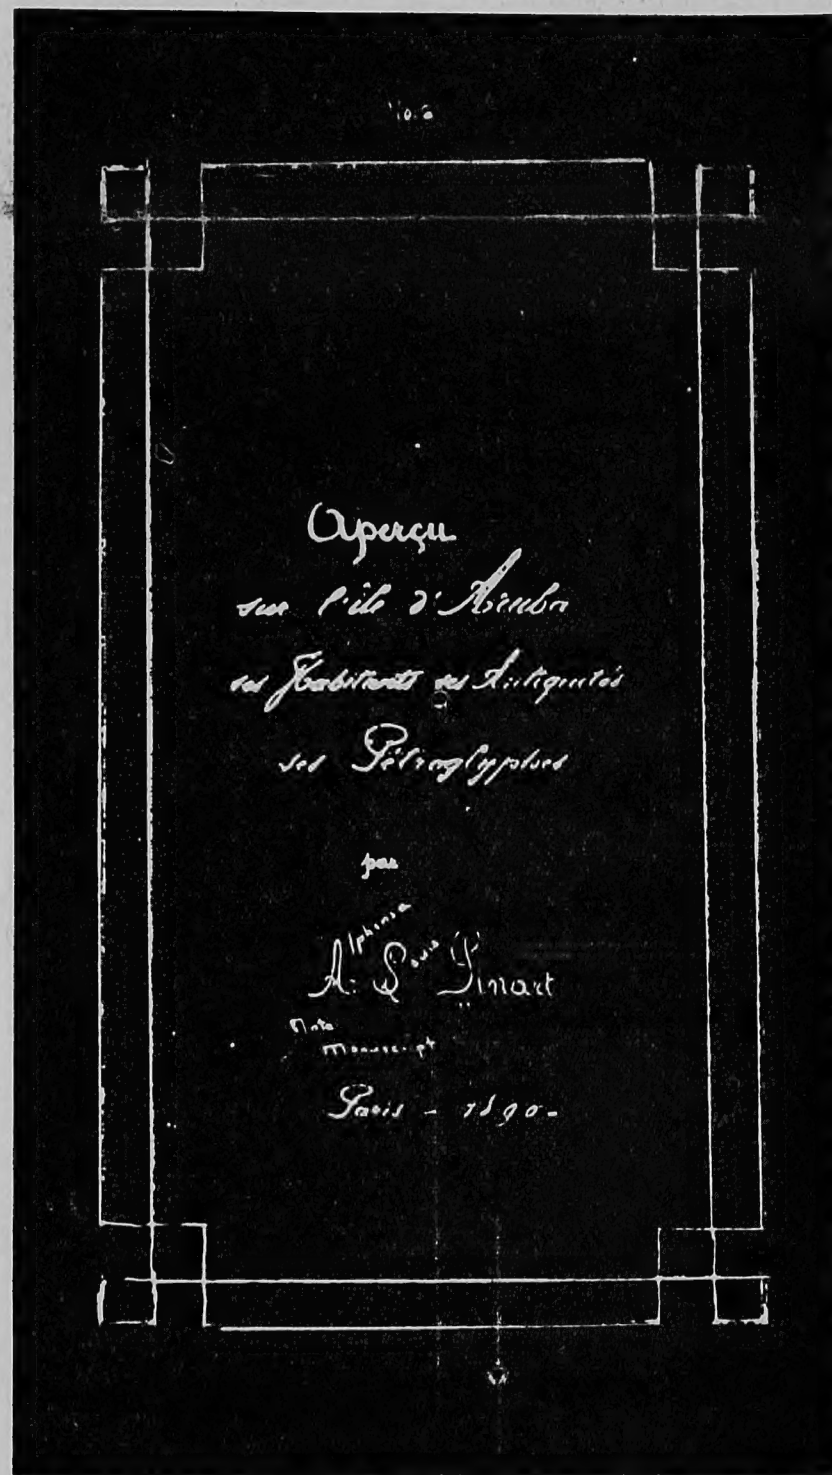 Aperçu
sur l'île d'Aruba
ses Habitants ses Antiquités
ses Pétroglyphes
par
Alphonse Louis Pinart
Note
Manuscript
Paris - 1890-